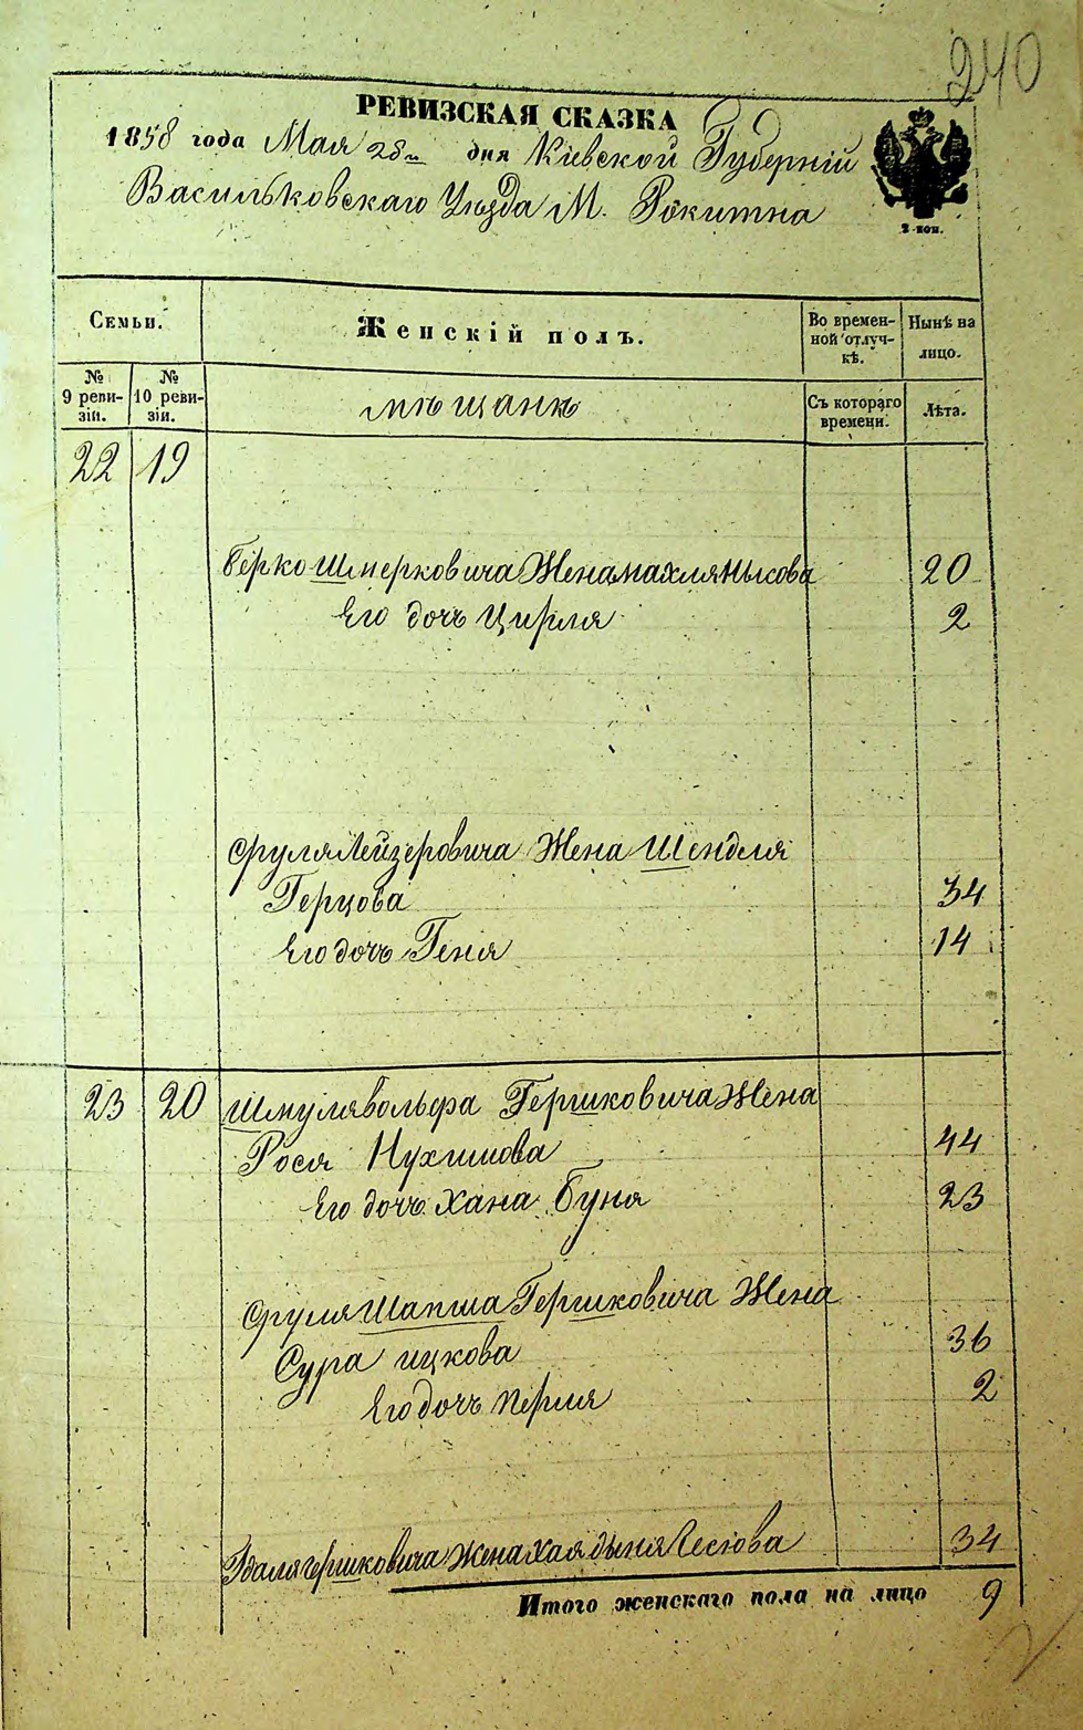 240
РЕВИЗСКАЯ СКАЗКА
1858 года Мая 28го дня Кіевской Губерніи
Васильковскаго Уѣзда М. Рокитна
2 коп.
Семьи.
Женскій полъ.
Во времен-
ной отлуч-
кѣ.
Нынѣ на
лицо.
№
9 реви-
зіи.
№
10 реви-
зіи.
мѣщанъ
Съ котораго
времени.
Лѣта.
22 19
Берко Шмерковича Жена Махля 20
Его дочь Цирля 2
Сруля Лейзеровича Жена Шендля
Герцова 34
Его дочь Геня 14
23 20 Шмуля Вольфа Гершковича Жена
Рося Нухимова 44
Его дочь Хана Буня 23
Сруля Шапша Гершковича Жена
Сура ицкова 36
Его дочь Перля 2
Гершковича Жена Хая 34
Итого женскаго пола на лицо 9